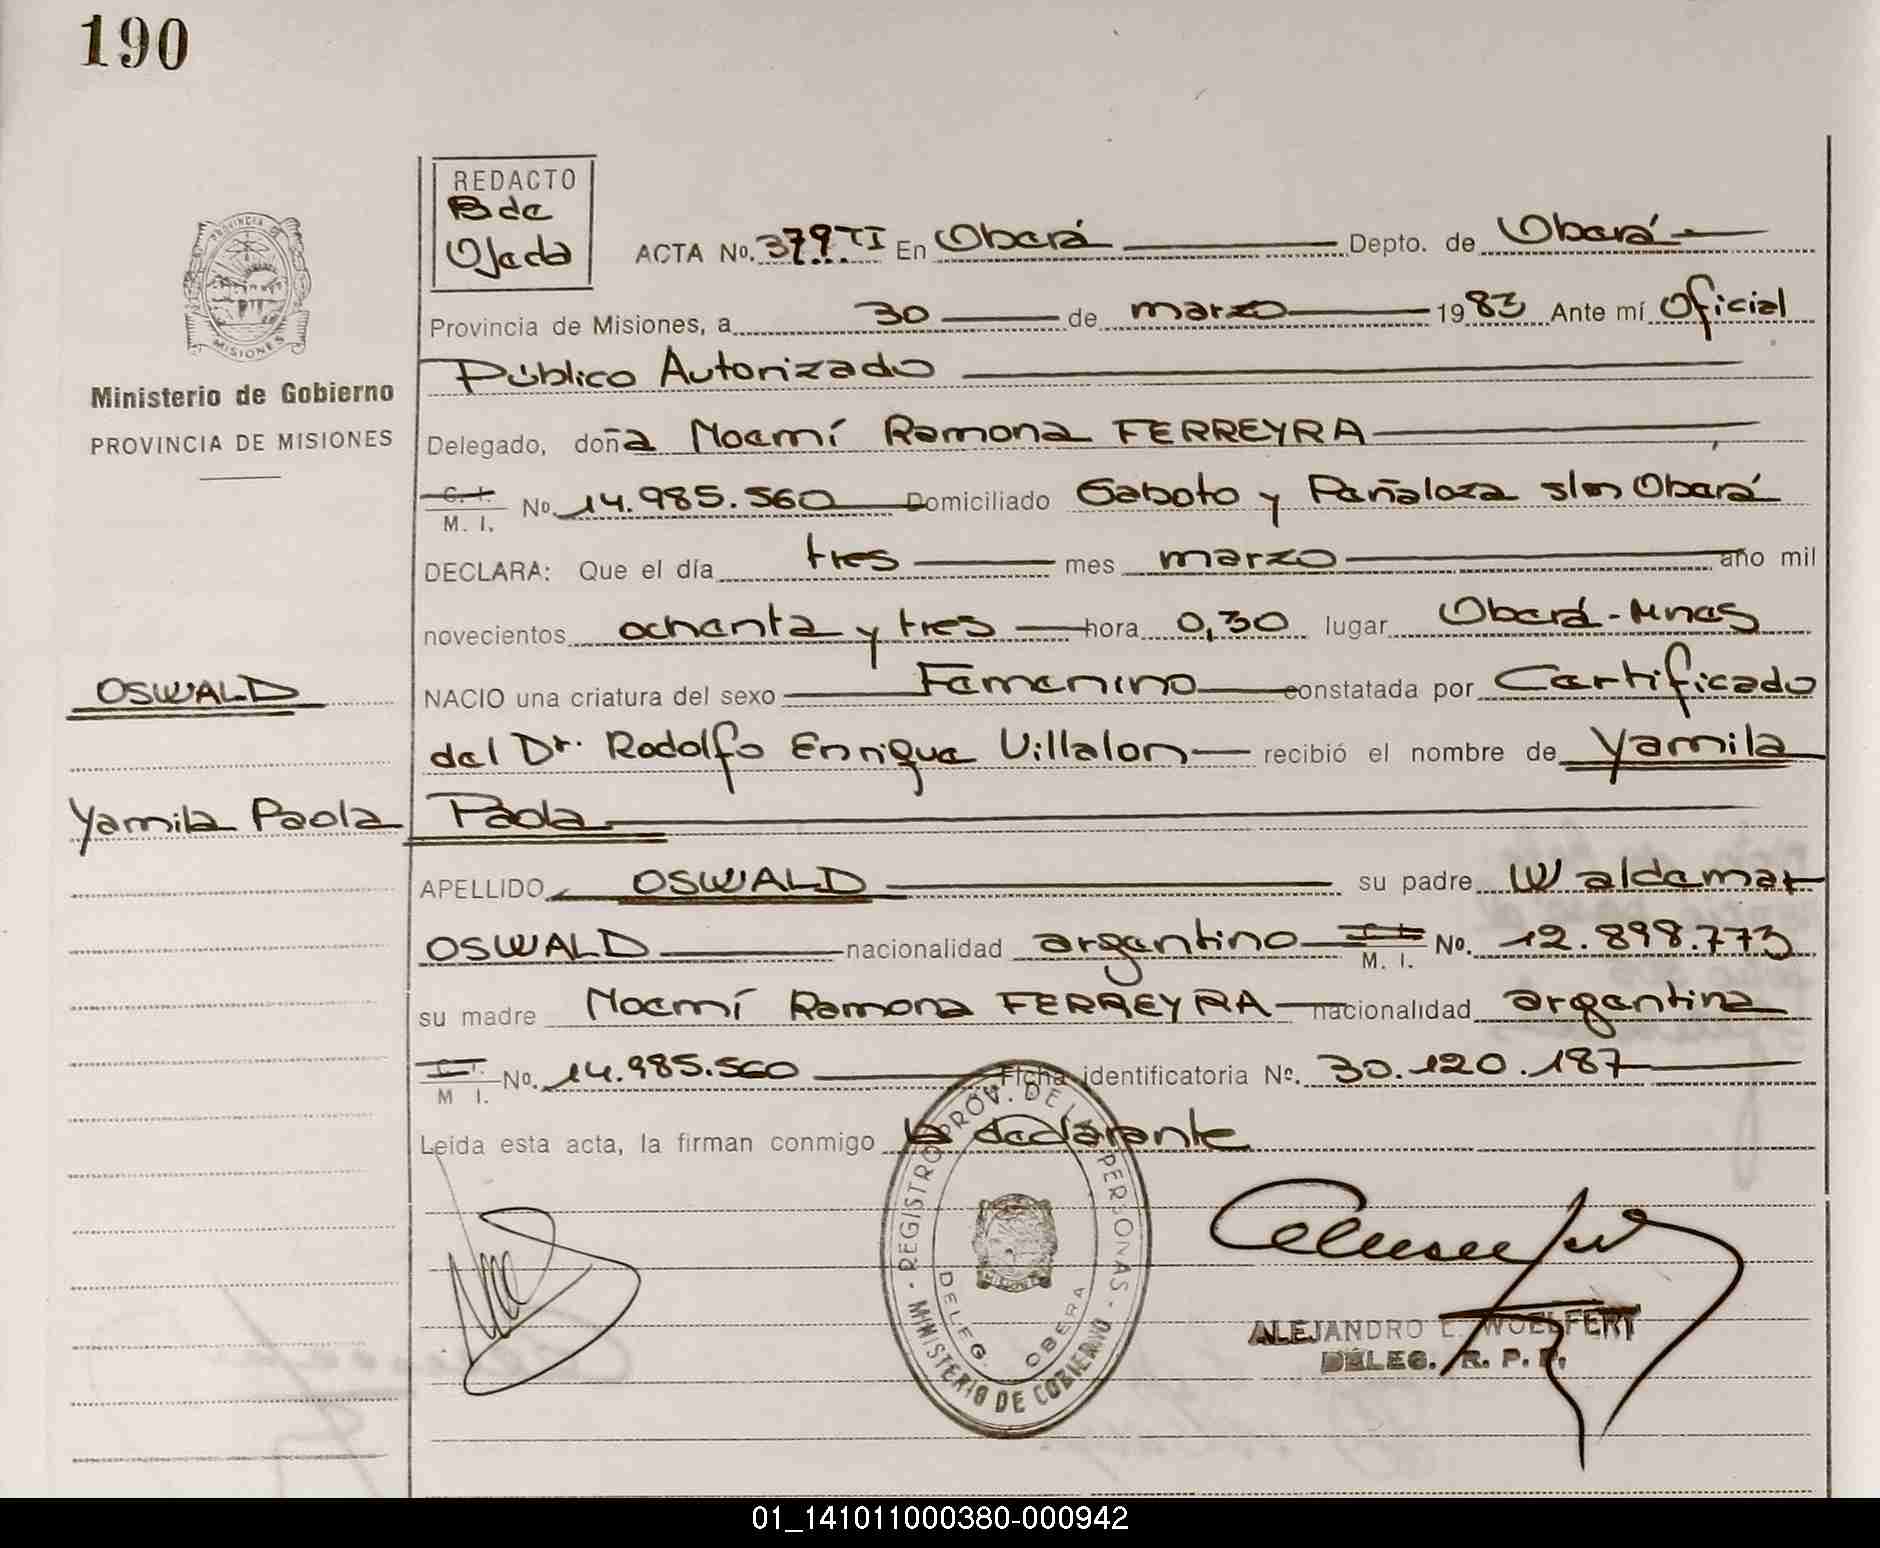 190
REDACTO
B de
Ojeda
ACTA No. 379 TI En Oberá Depto. de Oberá
PROVINCIA DE
MISIONES
Provincia de Misiones, a 30 de marzo 1983 Ante mí Oficial
Público Autorizado
Ministerio de Gobierno
PROVINCIA DE MISIONES
Delegado, doña Noemí Ramona FERREYRA
C. I.
M. I. No. 14.985.560 Domiciliado Gaboto y Peñaloza s/n Oberá
DECLARA: Que el día tres mes marzo año mil
novecientos ochenta y tres hora 0,30 lugar Oberá-Mnes
OSWALD
NACIO una criatura del sexo Femenino constatada por Certificado
del Dr. Rodolfo Enrique Villalon recibió el nombre de Yamila
Yamila Paola
Paola
APELLIDO OSWALD su padre Waldemar
OSWALD nacionalidad argentino C. I. M. I. No. 12.898.773
su madre Noemí Ramona FERREYRA nacionalidad argentina
C. I.
M. I. No. 14.985.560 Ficha identificatoria No. 30.120.187
Leída esta acta, la firman conmigo la declarante
REGISTRO PROV. DE LA PERSONAS
DELEG. OBERA
MISIONES
MINISTERIO DE GOBIERNO
ALEJANDRO E. WOELFERT
DELEG. R. P. P.
01_141011000380-000942